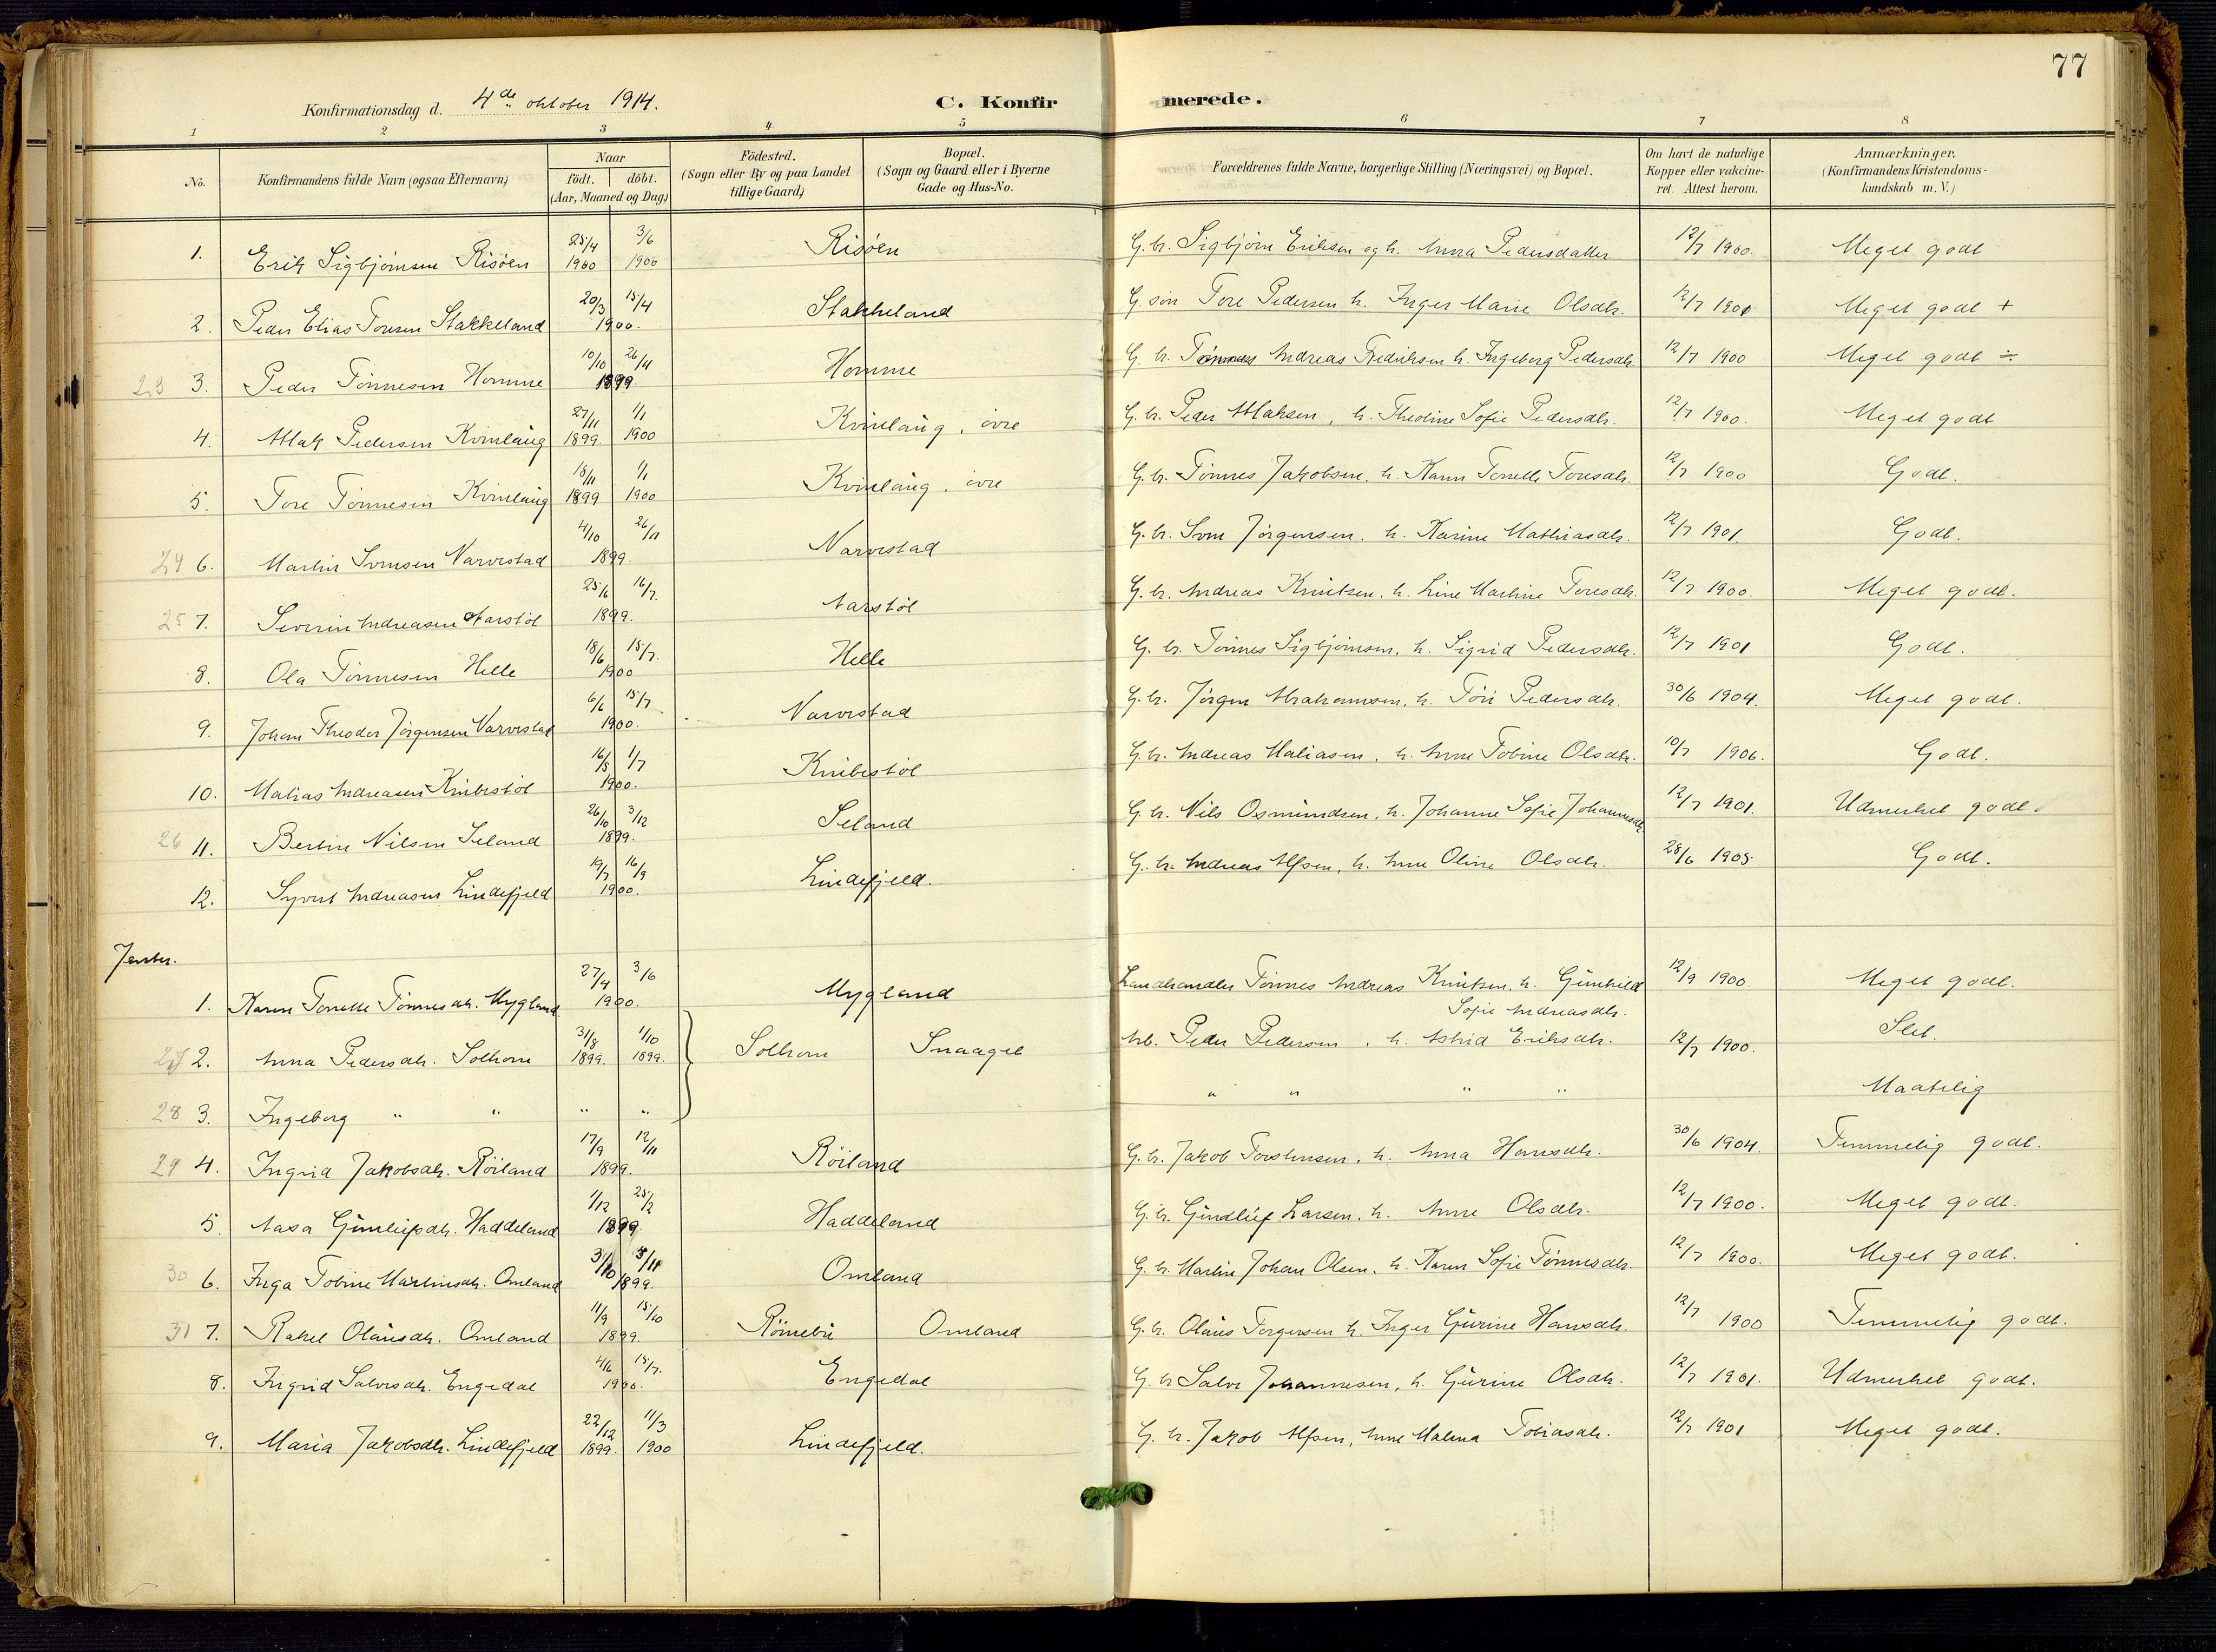 77
Konfirmationsdag d. 4de oktober 1914.
C. Konfirmerede.
1 2 3 4 5 6 7 8
No. Konfirmandens fulde Navn (ogsaa Efternavn) Naar födt. döbt. (Aar, Maaned og Dag) Födested. (Sogn eller By og paa Landet tillige Gaard) Bopæl. (Sogn og Gaard eller i Byerne Gade og Hus-No. Forældrenes fulde Navne, borgerlige Stilling (Næringsvei) og Bopæl. Om havt de naturlige Kopper eller vakcineret. Attest herom. Anmærkninger. (Konfirmandens Kristendomskundskab m. V.)
1. Erik Sigbjörnsen Risöen 25/4 1900 3/6 1900 Risöen G. br. Sigbjörn Eriksen og h. Anna Pedersdatter 12/7 1900. Meget godt
2. Peder Elias Toresen Stakkeland 20/3 15/4 1900. Stakkeland G. sön Tore Pedersen h. Inger Marie Olsdtr. 12/7 1901 Meget godt +
23 3. Peder Tönnesen Homme 10/10 26/11 1899 Homme G. br. Tönnes Andreas Fredriksen h. Ingeborg Pedersdtr. 12/7 1900 Meget godt ÷
4. Atlak Pedersen Kvinlaug 27/11 1899 1/1 1900 Kvinlaug, övre G. br. Peder Atlaksen, h. Theoline Sofie Pedersdtr. 12/7 1900. Meget godt
5. Tore Tönnesen Kvinlaug 18/11 1899 1/1 1900 Kvinlaug, övre G. br. Tönnes Jakobsen, h. Karen Tonette Toresdtr. 12/7 1900 Godt.
24 6. Martin Svensen Narvestad 4/10 26/11 1899. Narvestad G. br. Sven Jörgensen, h. Karine Mathiasdtr. 12/7 1901. Godt.
25 7. Severin Andreasen Aarstöl 25/6 16/7. 1899. Aarstöl G. br. Andreas Knutsen, h. Line Martine Toresdtr. 12/7 1900. Meget godt.
8. Ola Tönnesen Helle 18/6 15/7. 1900 Helle G. br. Tönnes Sigbjörnsen, h. Sigrid Pedersdtr. 12/7 1901 Godt.
9. Johan Theodor Jörgensen Narvestad 6/6 15/7 1900. Narvestad G. br. Jörgen Abrahamsen, h. Töri Pedersdtr. 30/6 1904. Meget godt.
10. Matias Andreasen Knibestöl 16/5 1/7 1900. Knibestöl G. br. Andreas Matiasen, h. Anne Tobine Olsdtr. 10/7 1906. Godt.
26 11. Bertine Nilsen Seland 26/10 3/12 1899. Seland G. br. Nils Osmundsen, h. Johanne Sofie Johannesdtr. 12/7 1901. Udmerket godt.
12. Syvert Andreasen Lindefjeld 19/7 16/9 1900. Lindefjeld. G. br. Andreas Alfsen, h. Anne Oline Olsdtr. 28/6 1905. Godt.
Jenter.
1. Karen Tonette Tönnesdtr. Mygland 27/4 3/6 1900. Mygland Landhandler Tönnes Andreas Knutsen, h. Gunhild Sofie Andreasdtr. 12/9 1900. Meget godt.
27 2. Anna Pedersdtr. Solhom 31/8 1899. 1/10 1899. Solhom Snaaget Arb. Peder Pedersen, h. Astrid Eriksdtr. 12/7 1900. Slet.
28 3. Ingeborg " " " " " " " " Maatelig
29 4. Ingrid Jakobsdtr. Röiland 17/9 12/11 1899. Röiland G. br. Jakob Torstensen, h. Anna Hansdtr. 30/6 1904. Temmelig godt.
5. Aasa Gunleifsdtr. Haddeland 1/12 25/12 1899 Haddeland G. br. Gundleif Larsen, h. Anne Olsdtr. 12/7 1900. Meget godt.
30 6. Inga Tobine Martinsdtr. Omland 31/10 1899. Omland G. br. Martin Johan Olsen, h. Karen Sofie Tönnesdtr. 12/7 1900. Meget godt.
31 7. Rakel Olausdtr. Omland 11/9 15/10 1899. Römebu Omland G. br. Olaus Torgersen h. Inger Gurine Hansdtr. 12/7 1900 Temmelig godt.
8. Ingrid Salvesdtr. Engedal 4/6 15/7. 1900. Engedal G. br. Salve Johannesen, h. Gurine Olsdtr. 12/7 1901. Udmerket godt.
9. Maria Jakobsdtr. Lindefjeld 22/12 1899. 11/3 1900 Lindefjeld. G. br. Jakob Alfsen, Anne Malena Tobiasdtr. 12/7 1901 Meget godt.